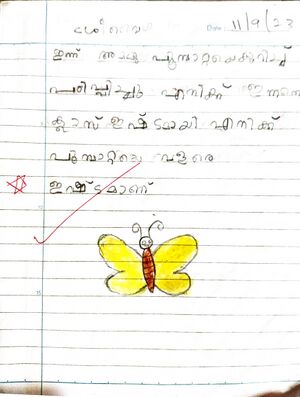 Date: 11/9/23
ഇന്ന് പൂമ്പാറ്റയെക്കുറിച്ച്
പഠിപ്പിച്ചു എനിക്ക് ഇന്നത്തെ
ക്ലാസ് ഇഷ്ടമായി എനിക്ക്
പൂമ്പാറ്റയെ വളരെ
ഇഷ്ടമാണ്